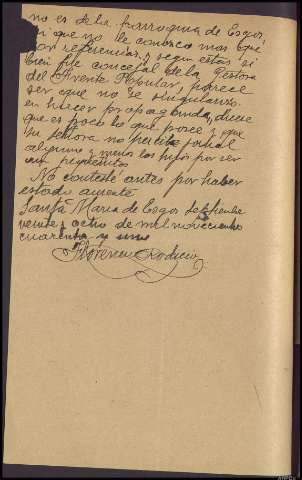 no es de la parroquia de Esgos,
si que no le conozco mas que
por referencias, y segun estas si
bien fue concejal de la Gestora
del Frente Popular, parece
ser que no se singularizo
en hacer propaganda, dice
que es poco lo que posee y que
su señora no percibe jornal
alguno y menos los hijos por ser
aun pequeños
No contesté antes por haber
estado ausente
Santa Maria de Esgos Septiembre
veinte y ocho de mil novecientos
cuarenta y uno
Florencio Rodicio